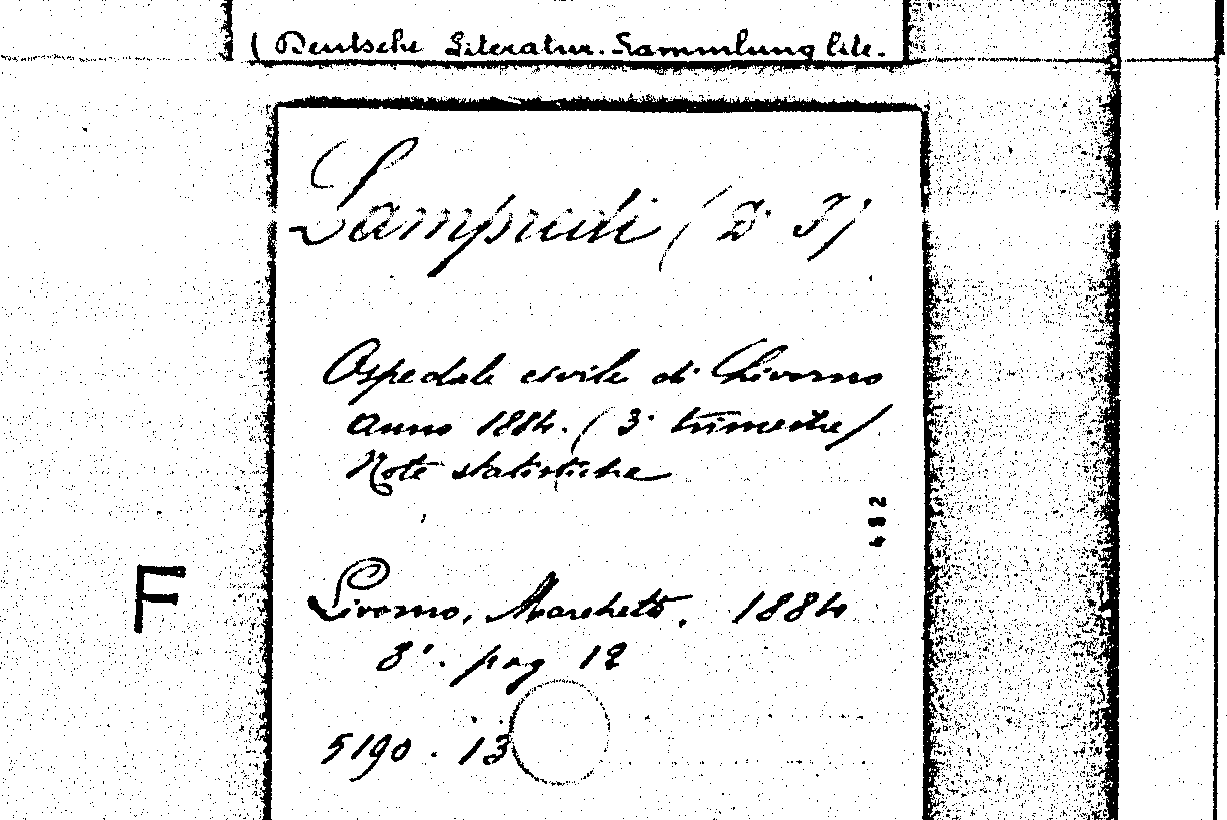 (Deutsche Literatur. Sammlung lite.
Lampredi (D. I)
Ospedale civile di Livorno
Anno 1884. (3° trimestre)
Note statistiche
482
Livorno, Marchetti, 1884
8°. pag 12
5190. 13
F